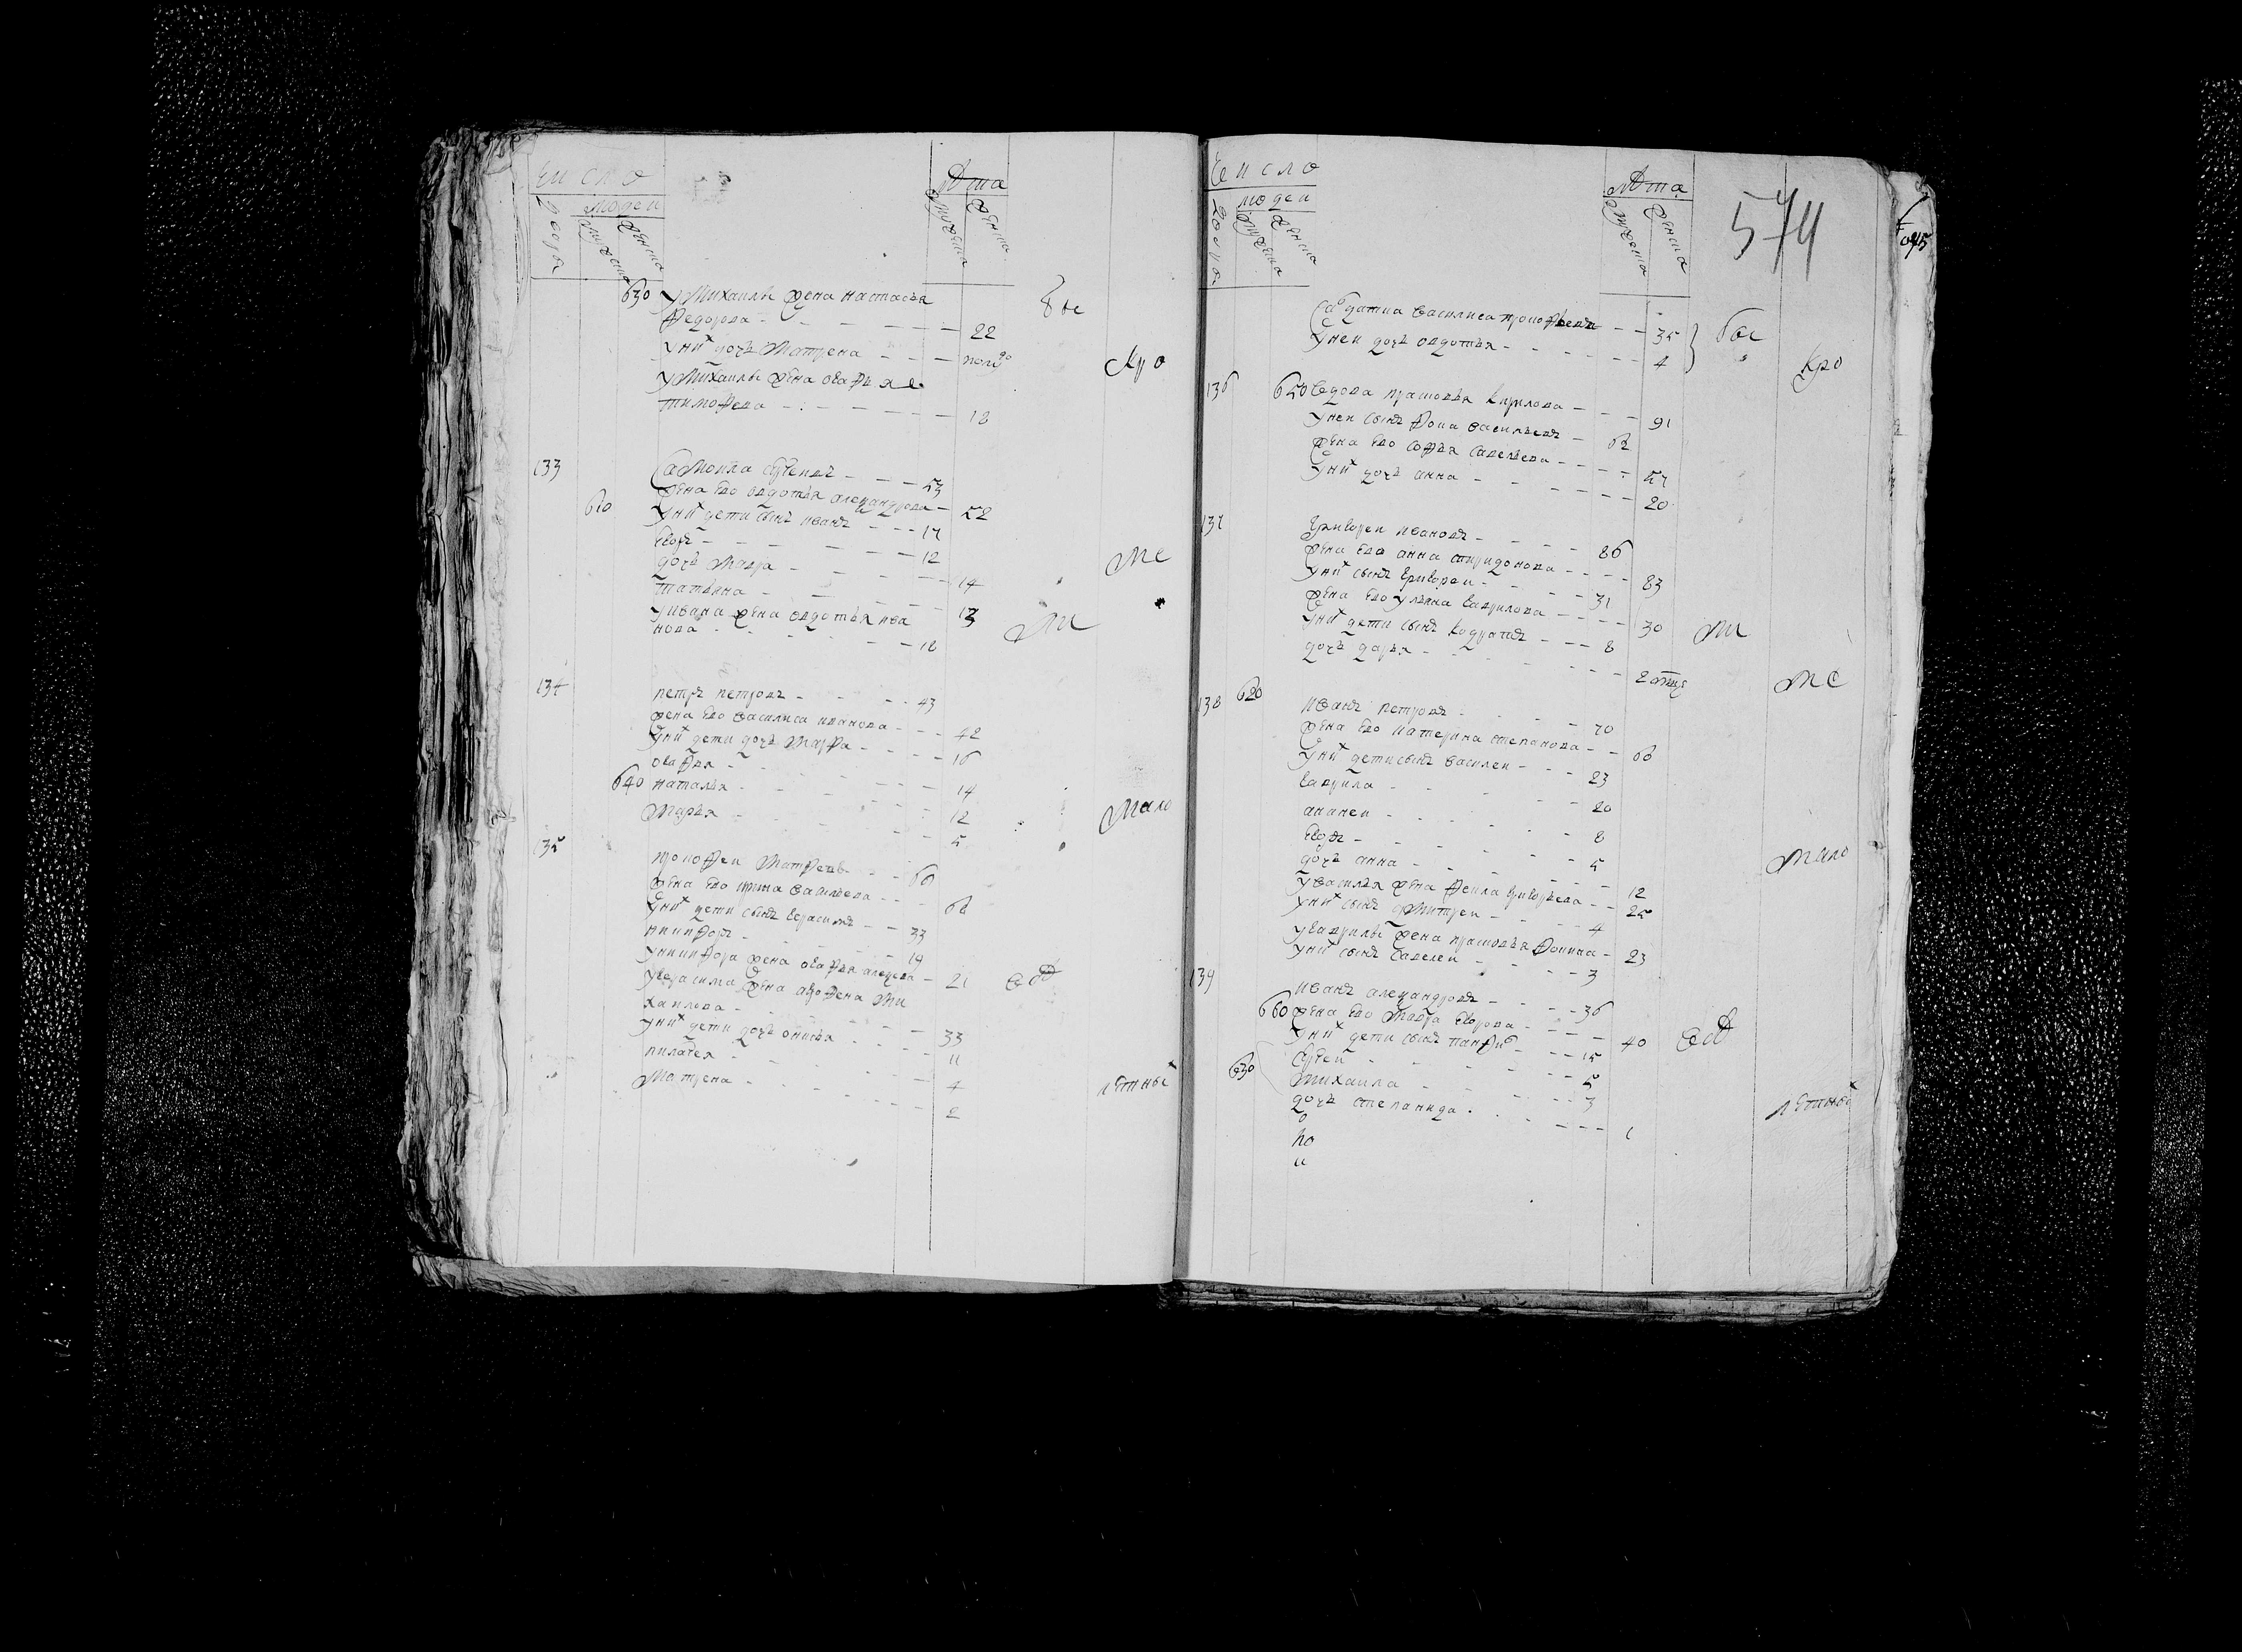 Число
людей
двора
мужеска
женска
лѣта
мужеска
женска
630 у михаилы жена настасья
федорова 22
бы
у них дочь матрена полго
Кро
у михаилы жена огафья
тимофева 18
133 Самоила Сргеевъ 53
жена ево овдотья александрова 52
610 у них дети сынъ иванъ 17
Егоръ 12
дочь мавра 14
ис
татьяна 13
у ивана жена овдотья ива
нова 18
134 петръ петровъ 43
жена ево василиса иванова 42
у них дети дочь марфа 16
огафья 14
640 наталья 12
марья 5
мало
135 прокофеи матфеевъ 66
жена ево ирина васильева 68
у них дети сынъ герасимъ 33
никифоръ 19
у никифора жена огафья алексева 21
у герасима жена аксфена ми
хаилова 33
у них дети дочь онисья 11
пилагея 4
лѣтные
матрена 2
Число
людей
двора
мужеска
женска
лѣта
мужеска
женска
574
салдатка василиса прокофьевна 35
бы
у неи дочь овдотья 4
Кро
136 650 вдова прасковья кирилова 91
у неи сынъ фока васильевъ 62
жена ево софья савельева 57
у них дочь анна 20
137 Григореи ивановъ 86
жена ево анна спиридонова 83
у них сынъ григореи 31
жена ево ульяна гаврилова 30
у них дети сынъ кодратеи 8
дочь дарья
ис
138 620 иванъ петровъ 70
жена ево катерина степанова 66
у них дети сынъ василеи 23
гаврила 20
ананеи 8
Егоръ 5
дочь анна 12
мало
у василья жена фекла григорьева 25
у них сынъ дмитреи 4
у гаврилы жена прасковья фокина 23
у них сынъ савелеи 3
139 иванъ александровъ 36
660 жена ево мавра Егорова 40
у них дети сынъ панфил 15
630 Сргеи 5
михаила 3
дочь степанида 1
лѣтные
но
и